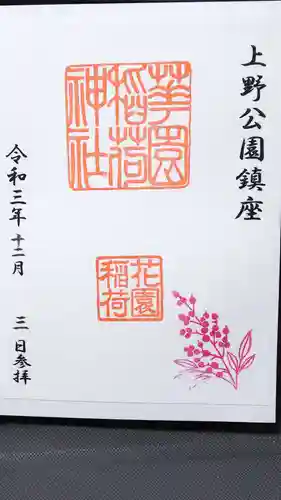 上野公園鎮座
華園
稲荷
神社
花園
稲荷
令和三年十二月 三 日参拝